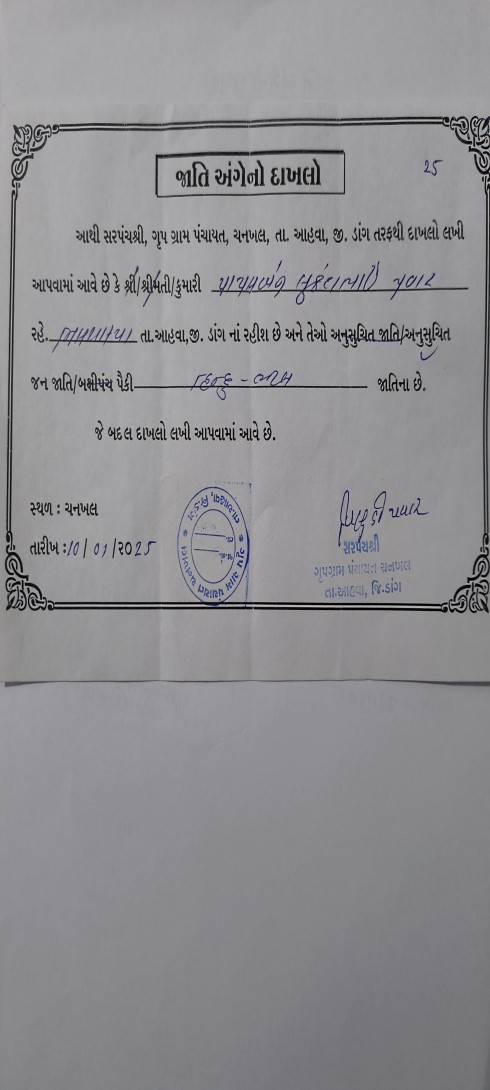 જાતિ અંગેનો દાખલો
25
આથી સરપંચશ્રી, ગૃપ ગ્રામ પંચાયત, ચનખલ, તા. આહવા, જી. ડાંગ તરફથી દાખલો લખી
આપવામાં આવે છે કે શ્રી/શ્રીમતી/કુમારી
રહે. તા.આહવા,જી. ડાંગ નાં રહીશ છે અને તેઓ અનુસુચિત જાતિ/અનુસુચિત
જન જાતિ/બક્ષીપંચ પૈકી હિન્દુ - જાતિના છે.
જે બદલ દાખલો લખી આપવામાં આવે છે.
સ્થળ : ચનખલ
તારીખ :10/01/૨૦25
સરપંચશ્રી
ગૃપગ્રામ પંચાયત ચનખલ
તા.આહવા, જિ.ડાંગ
ગૃપ ગ્રામ પંચાયત ચનખલ
તા.આહવા, જિ.ડાંગ